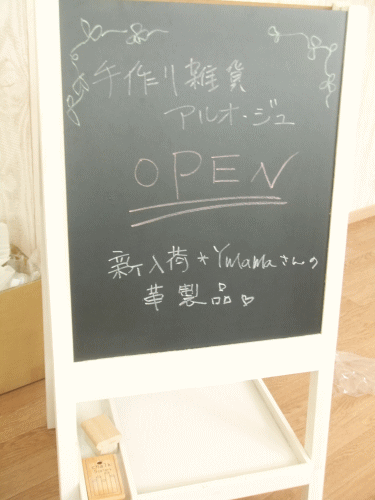 手作り雑貨
アルオ・ジュ
OPEN
新入荷*Ymamaさんの
革製品♡